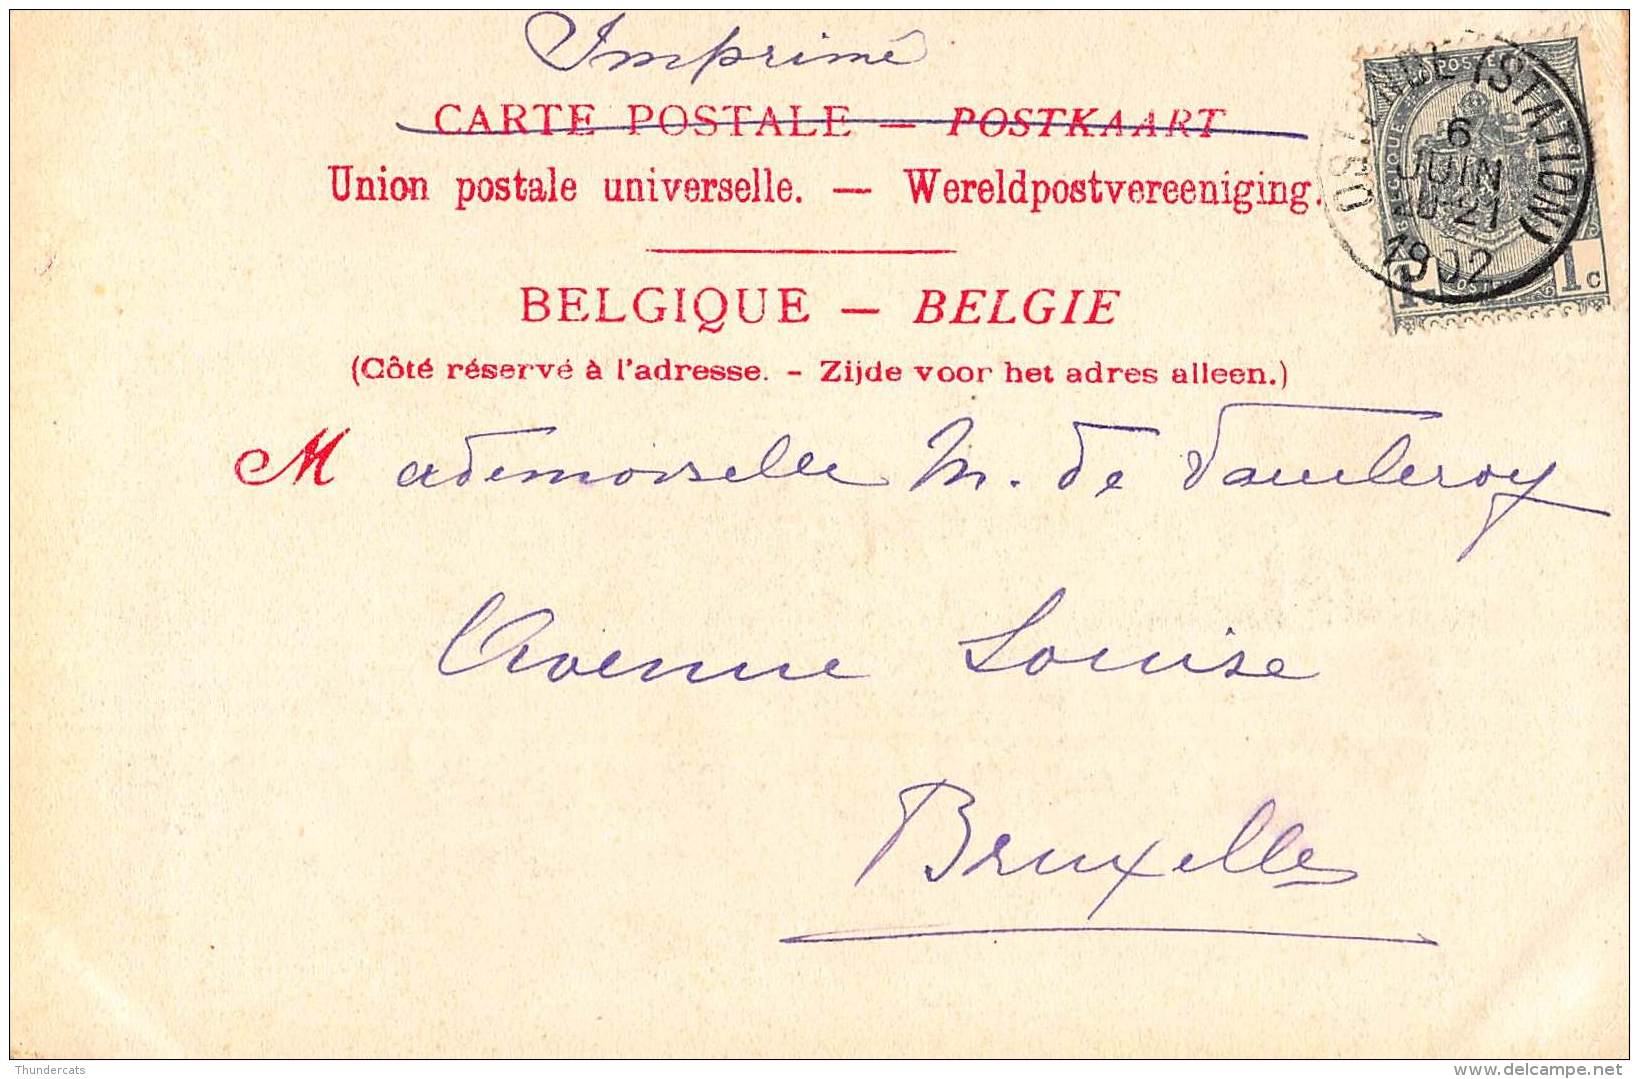 Imprimé
CARTE POSTALE — POSTKAART
Union postale universelle. — Wereldpostvereeniging.
BELGIQUE — BELGIE
(Côté réservé à l'adresse. - Zijde voor het adres alleen.)
Mademoiselle M. de
Avenue Louise
Bruxelles
OSTENDE (STATION)
6
JUIN
20-21
1902
POSTERIJEN
BELGIQUE
1c
Thundercats
www.delcampe.net